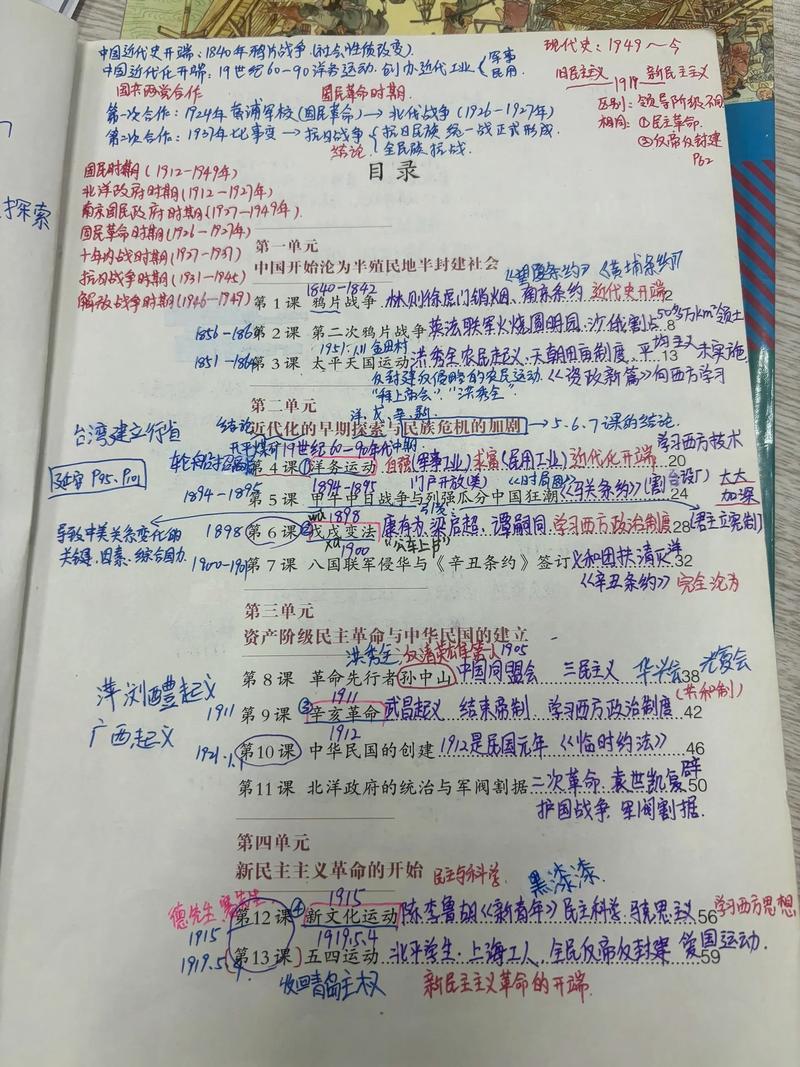 中国近代史开端：1840年鸦片战争（社会性质改变）
中国近代化开端：19世纪60-90洋务运动.创办近代工业{军事 民用
国共两党合作 国民革命时期
第一次合作：1924年黄埔军校（国民革命）→北伐战争（1926-1927年）
第二次合作：1937年七七事变→抗日战争{抗日民族统一战正式形成
结论 全民族抗战.
现代史：1949～今
旧民主主义 1919 新民主主义
区别：领导阶级不同
相同：①民主革命
②反帝反封建
P62
探索
目录
国民时期（1912-1949年）
北洋政府时期（1912-1927年）
南京国民政府时期（1927-1949年）
国民革命时期（1926-1927年）
十年内战时期（1927-1937）
抗日战争时期（1931-1945）
解放战争时期（1946-1949）
第一单元
中国开始沦为半殖民地半封建社会
《望厦条约》《黄埔条约》
1840-1842
第1课 鸦片战争 林则徐虎门销烟、南京条约 近代史开端 2
1856-186 第2课 第二次鸦片战争 英法联军火烧圆明园.沙俄割占 150多万km²领土 8
1951.1.11 金田村
1851-186 第3课 太平天国运动 洪秀全农民起义.天朝田亩制度 平均主义 13 未实施
反封建反侵略的农民运动.《资政新篇》向西方学习
"拜上帝会""洪秀全"
第二单元
洋、戊、辛、新
结论 近代化的早期探索与民族危机的加剧→5.6.7课的结论.
台湾建立行省
开平煤矿19世纪60-90年代中期
轮船招商局 第4课 ①洋务运动 自强（军事工业）求富（民用工业）近代化开端 学习西方技术 20
P95、P101
1894-1895 门户开放（美）《时局图》
1894-1895 第5课 甲午中日战争与列强瓜分中国狂潮 《马关条约》（割台设厂）24 大大加深
导致中美关系变化的
关键.因素.综合国力
1898
1898 第6课 ②戊戌变法 康有为.梁启超、谭嗣同 学习西方政治制度 28（君主立宪制）
1900 "公车上书"
1900-1901 第7课 八国联军侵华与《辛丑条约》签订 义和团扶清灭洋 32
《辛丑条约》完全沦为
第三单元
资产阶级民主革命与中华民国的建立
洪秀全，反清英雄第一人 1905
第8课 革命先行者孙中山 中国同盟会 三民主义 华兴会 光复会 38
萍浏醴起义
1911 （共和制）
1911 第9课 ③辛亥革命 武昌起义 结束帝制 学习西方政治制度 42
广西起义
1912
1921.1.1 第10课 中华民国的创建 1912是民国元年《临时约法》 46
第11课 北洋政府的统治与军阀割据 二次革命 袁世凯复辟 50
护国战争 军阀割据.
第四单元
新民主主义革命的开始 民主与科学. 黑漆漆.
德先生 赛先生 1915
1915 第12课 ④新文化运动 陈李鲁胡《新青年》民主科学 马克思主义 56 学习西方思想
1919.5.4
1919.5.4 第13课 五四运动 北平学生.上海工人.全民反帝反封建 爱国运动. 59
收回青岛主权 新民主主义革命的开端.